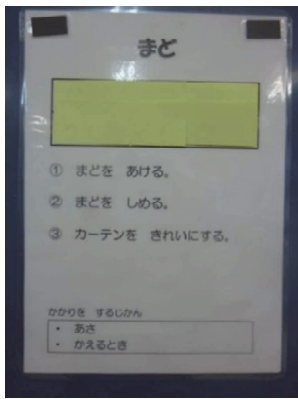 まど
① まどを あける。
② まどを しめる。
③ カーテンを きれいにする。
かかりを するじかん
・ あさ
・ かえるとき